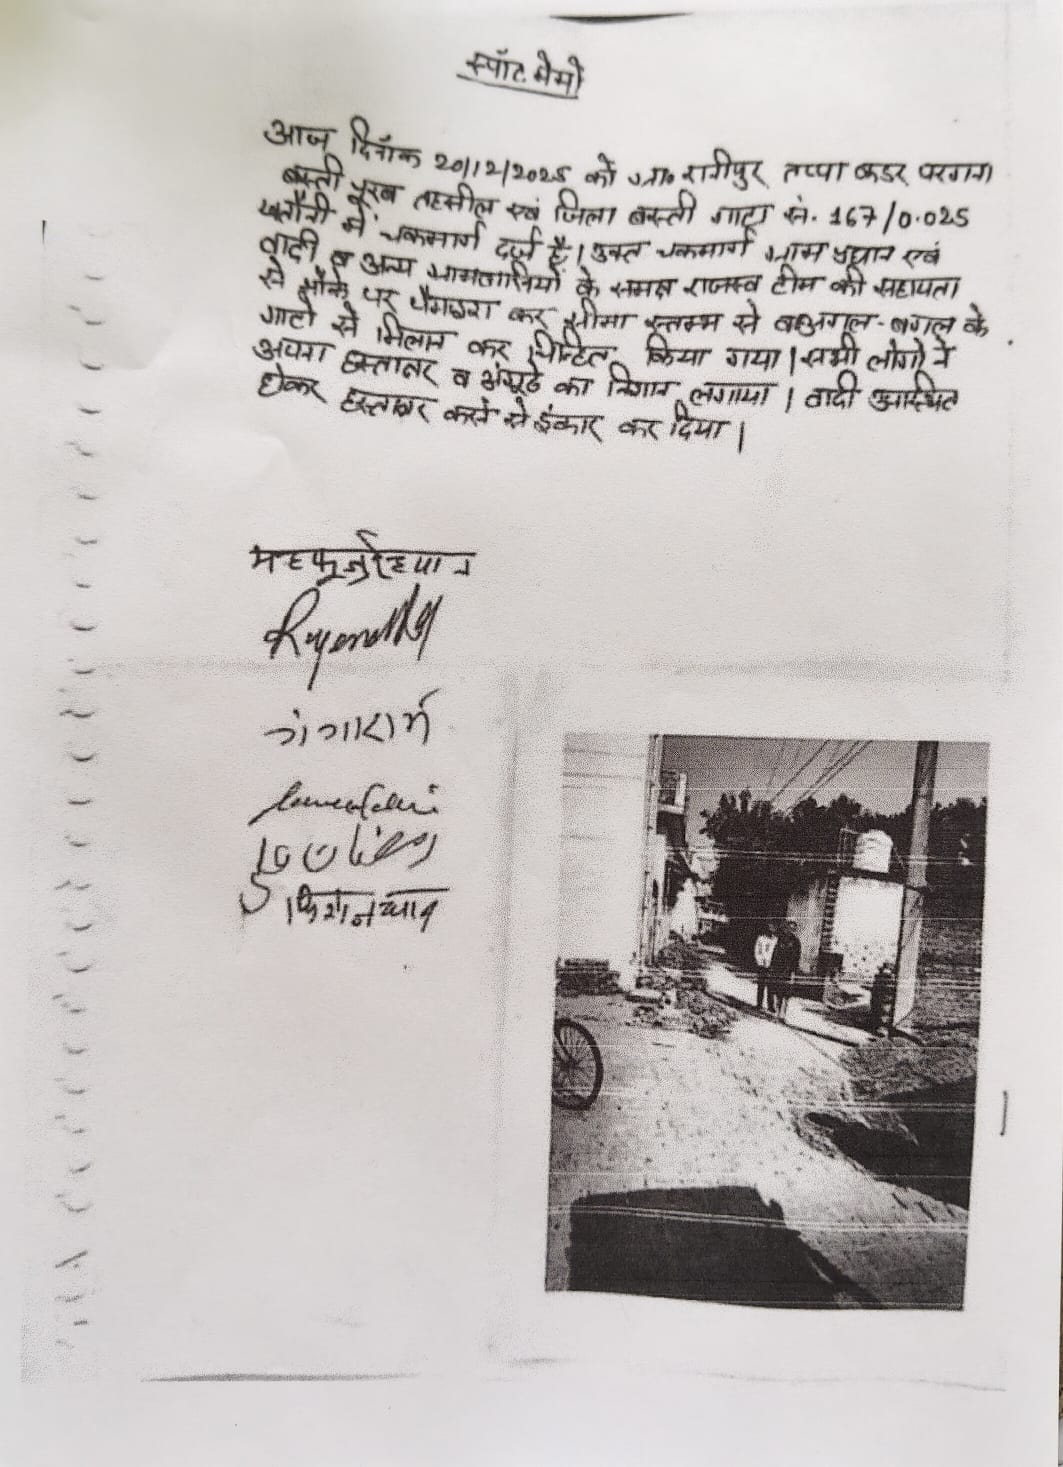 स्पॉट मेमो
आज दिनाँक 20/12/2025 को ग्रा० रानीपुर तप्पा कडर परगना
बस्ती पूरब तहसील एवं जिला बस्ती गाटा सं. 167/0.025
खतौनी में चकमार्ग दर्ज है। उक्त चकमार्ग ग्राम प्रधान एवं
वादी व अन्य ग्रामवासियों के समक्ष राजस्व टीम की सहायता
से मौके पर पैमाइश कर सीमा स्तम्भ से अगल-बगल के
गाटो से मिलान कर चिन्हित किया गया। सभी लोगो ने
अपना हस्ताक्षर व अंगूठे का निशान लगाया। वादी उपस्थित
होकर हस्ताक्षर करने से इंकार कर दिया।
गंगाराम